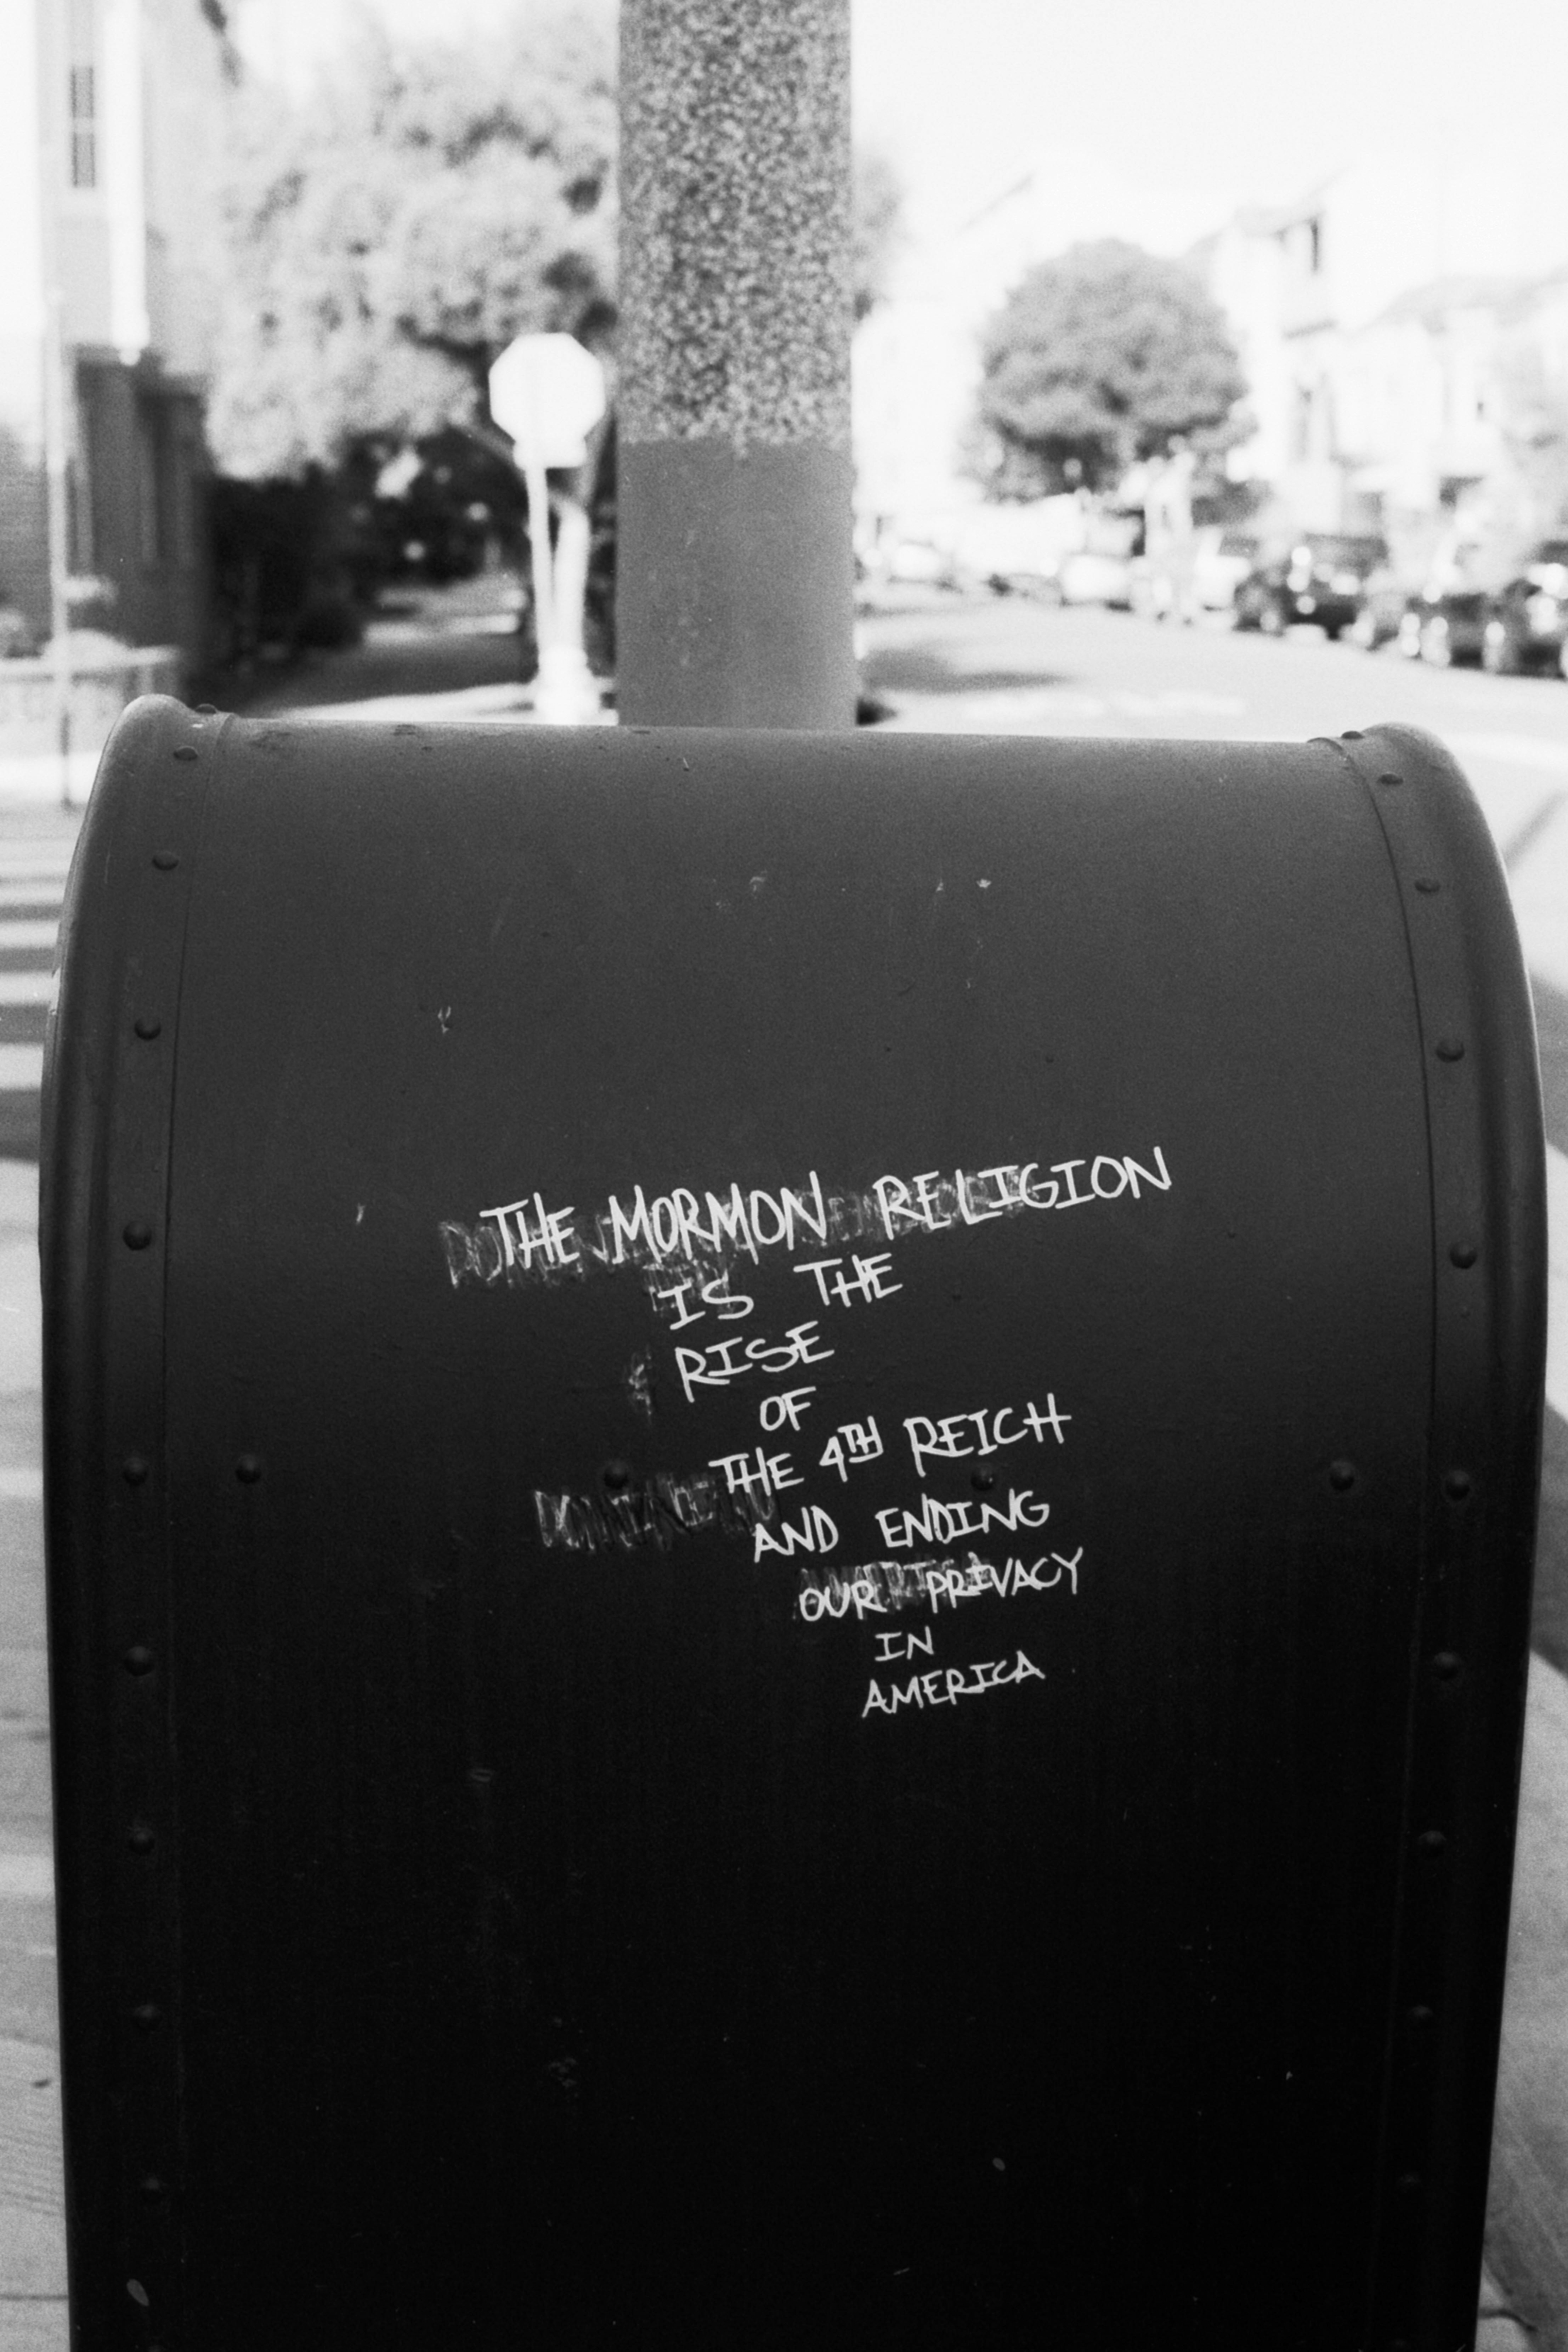 THE MORMON RELIGION
IS THE
RISE
OF
THE 4TH REICH
AND ENDING
OUR PRIVACY
IN
AMERICA